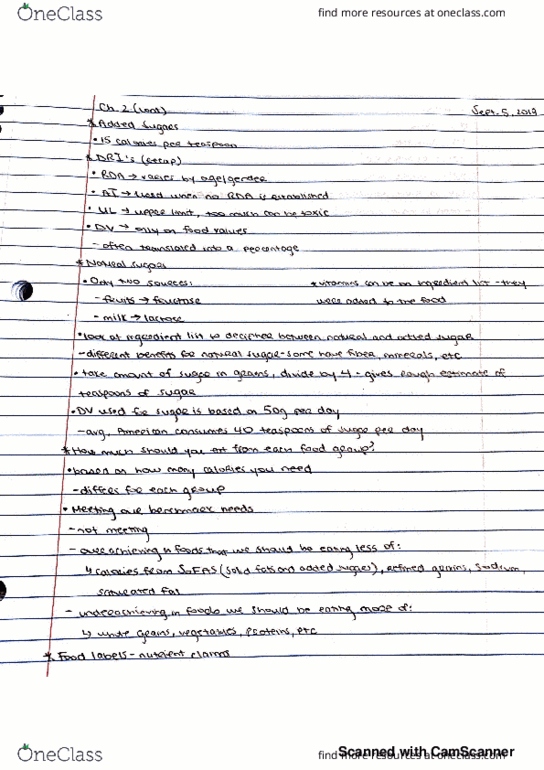 OneClass
find more resources at oneclass.com
Ch. 2 (cont) Sept. 5, 2019
* Added Sugars
• 15 calories per teaspoon
* DRI's (recap)
• RDA → varies by age/gender
• AI → used when no RDA is established
• UL → upper limit, too much can be toxic
• DV → only on food values
- often translated into a percentage
* Natural sugar
• Only two sources: * vitamins can be on ingredient list - they
- fruits → fructose were added to the food
- milk → lactose
• look at ingredient list to decipher between natural and added sugar
- different benefits for natural sugar - some have fiber, minerals, etc
• take amount of sugar in grams, divide by 4 - gives rough estimate of
teaspoons of sugar
• DV used for sugar is based on 50g per day
- avg. American consumes 40 teaspoons of sugar per day
* How much should you eat from each food group?
• based on how many calories you need
- differs for each group
• Meeting our benchmark needs
- not meeting
- overachieving in foods that we should be eating less of:
↳ calories from SoFAS (solid fats and added sugars), refined grains, sodium,
saturated fat
- underachieving in foods we should be eating more of:
↳ grains, vegetables, proteins, etc
* Food labels - nutrient claims
OneClass
find more resources at oneclass.com
Scanned with CamScanner